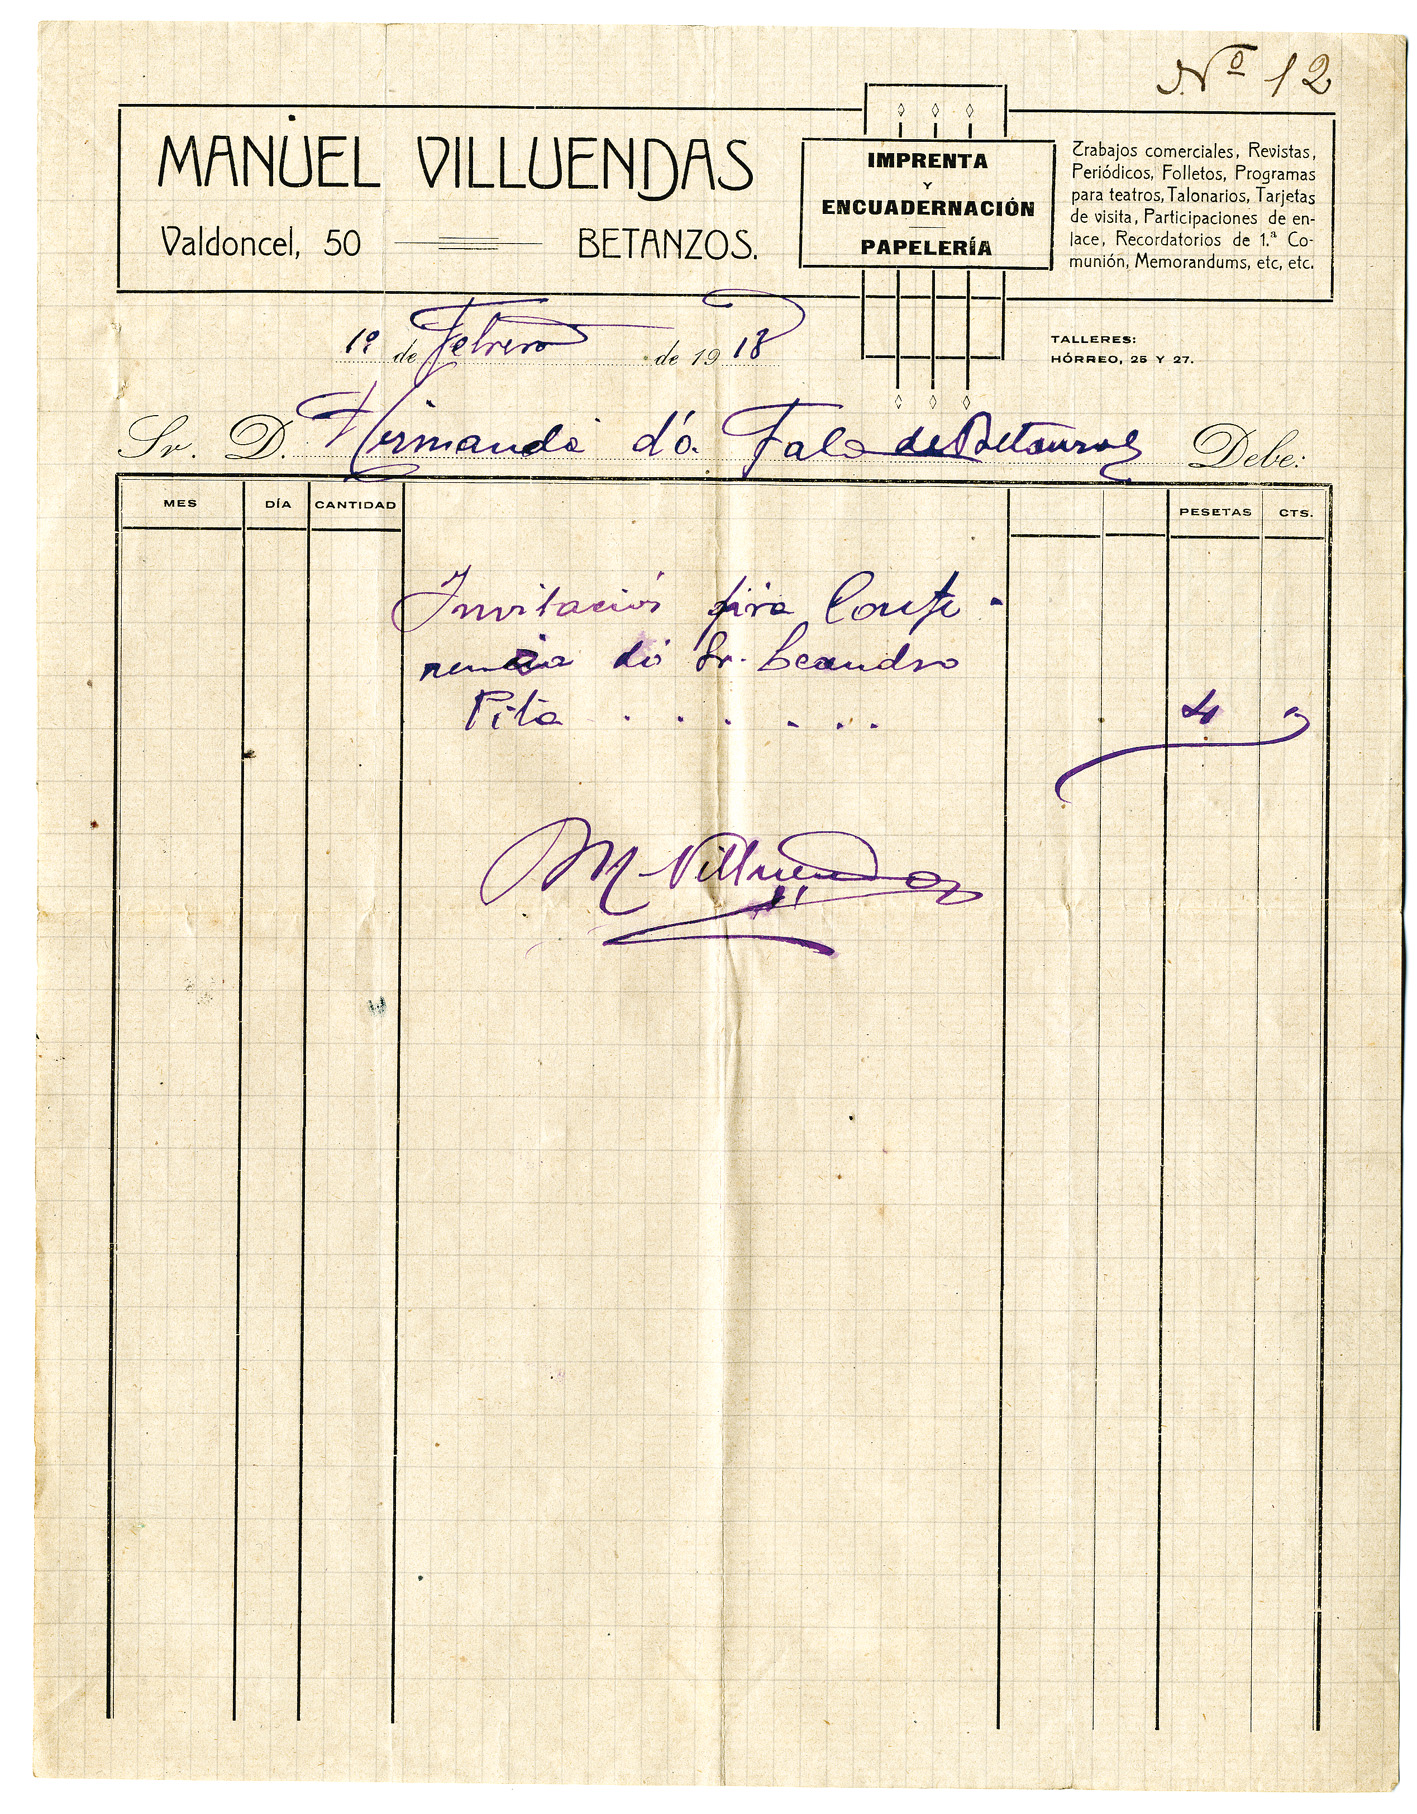 Nº 12
MANUEL VILLUENDAS
Valdoncel, 50 BETANZOS.
IMPRENTA
Y
ENCUADERNACIÓN
PAPELERÍA
Trabajos comerciales, Revistas,
Periódicos, Folletos, Programas
para teatros, Talonarios, Tarjetas
de visita, Participaciones de en-
lace, Recordatorios de 1.ª Co-
munión, Memorandums, etc, etc.
TALLERES:
HÓRREO, 25 Y 27.
1º de Febrero de 1918
Sr. D. Hirmandá d'a Fala de Betanzos Debe:
MES DÍA CANTIDAD PESETAS CTS.
Invitaciós pira Confe-
rencia do Sr. Leandro
Pita . . . . . . . 4 "
M Villuendas